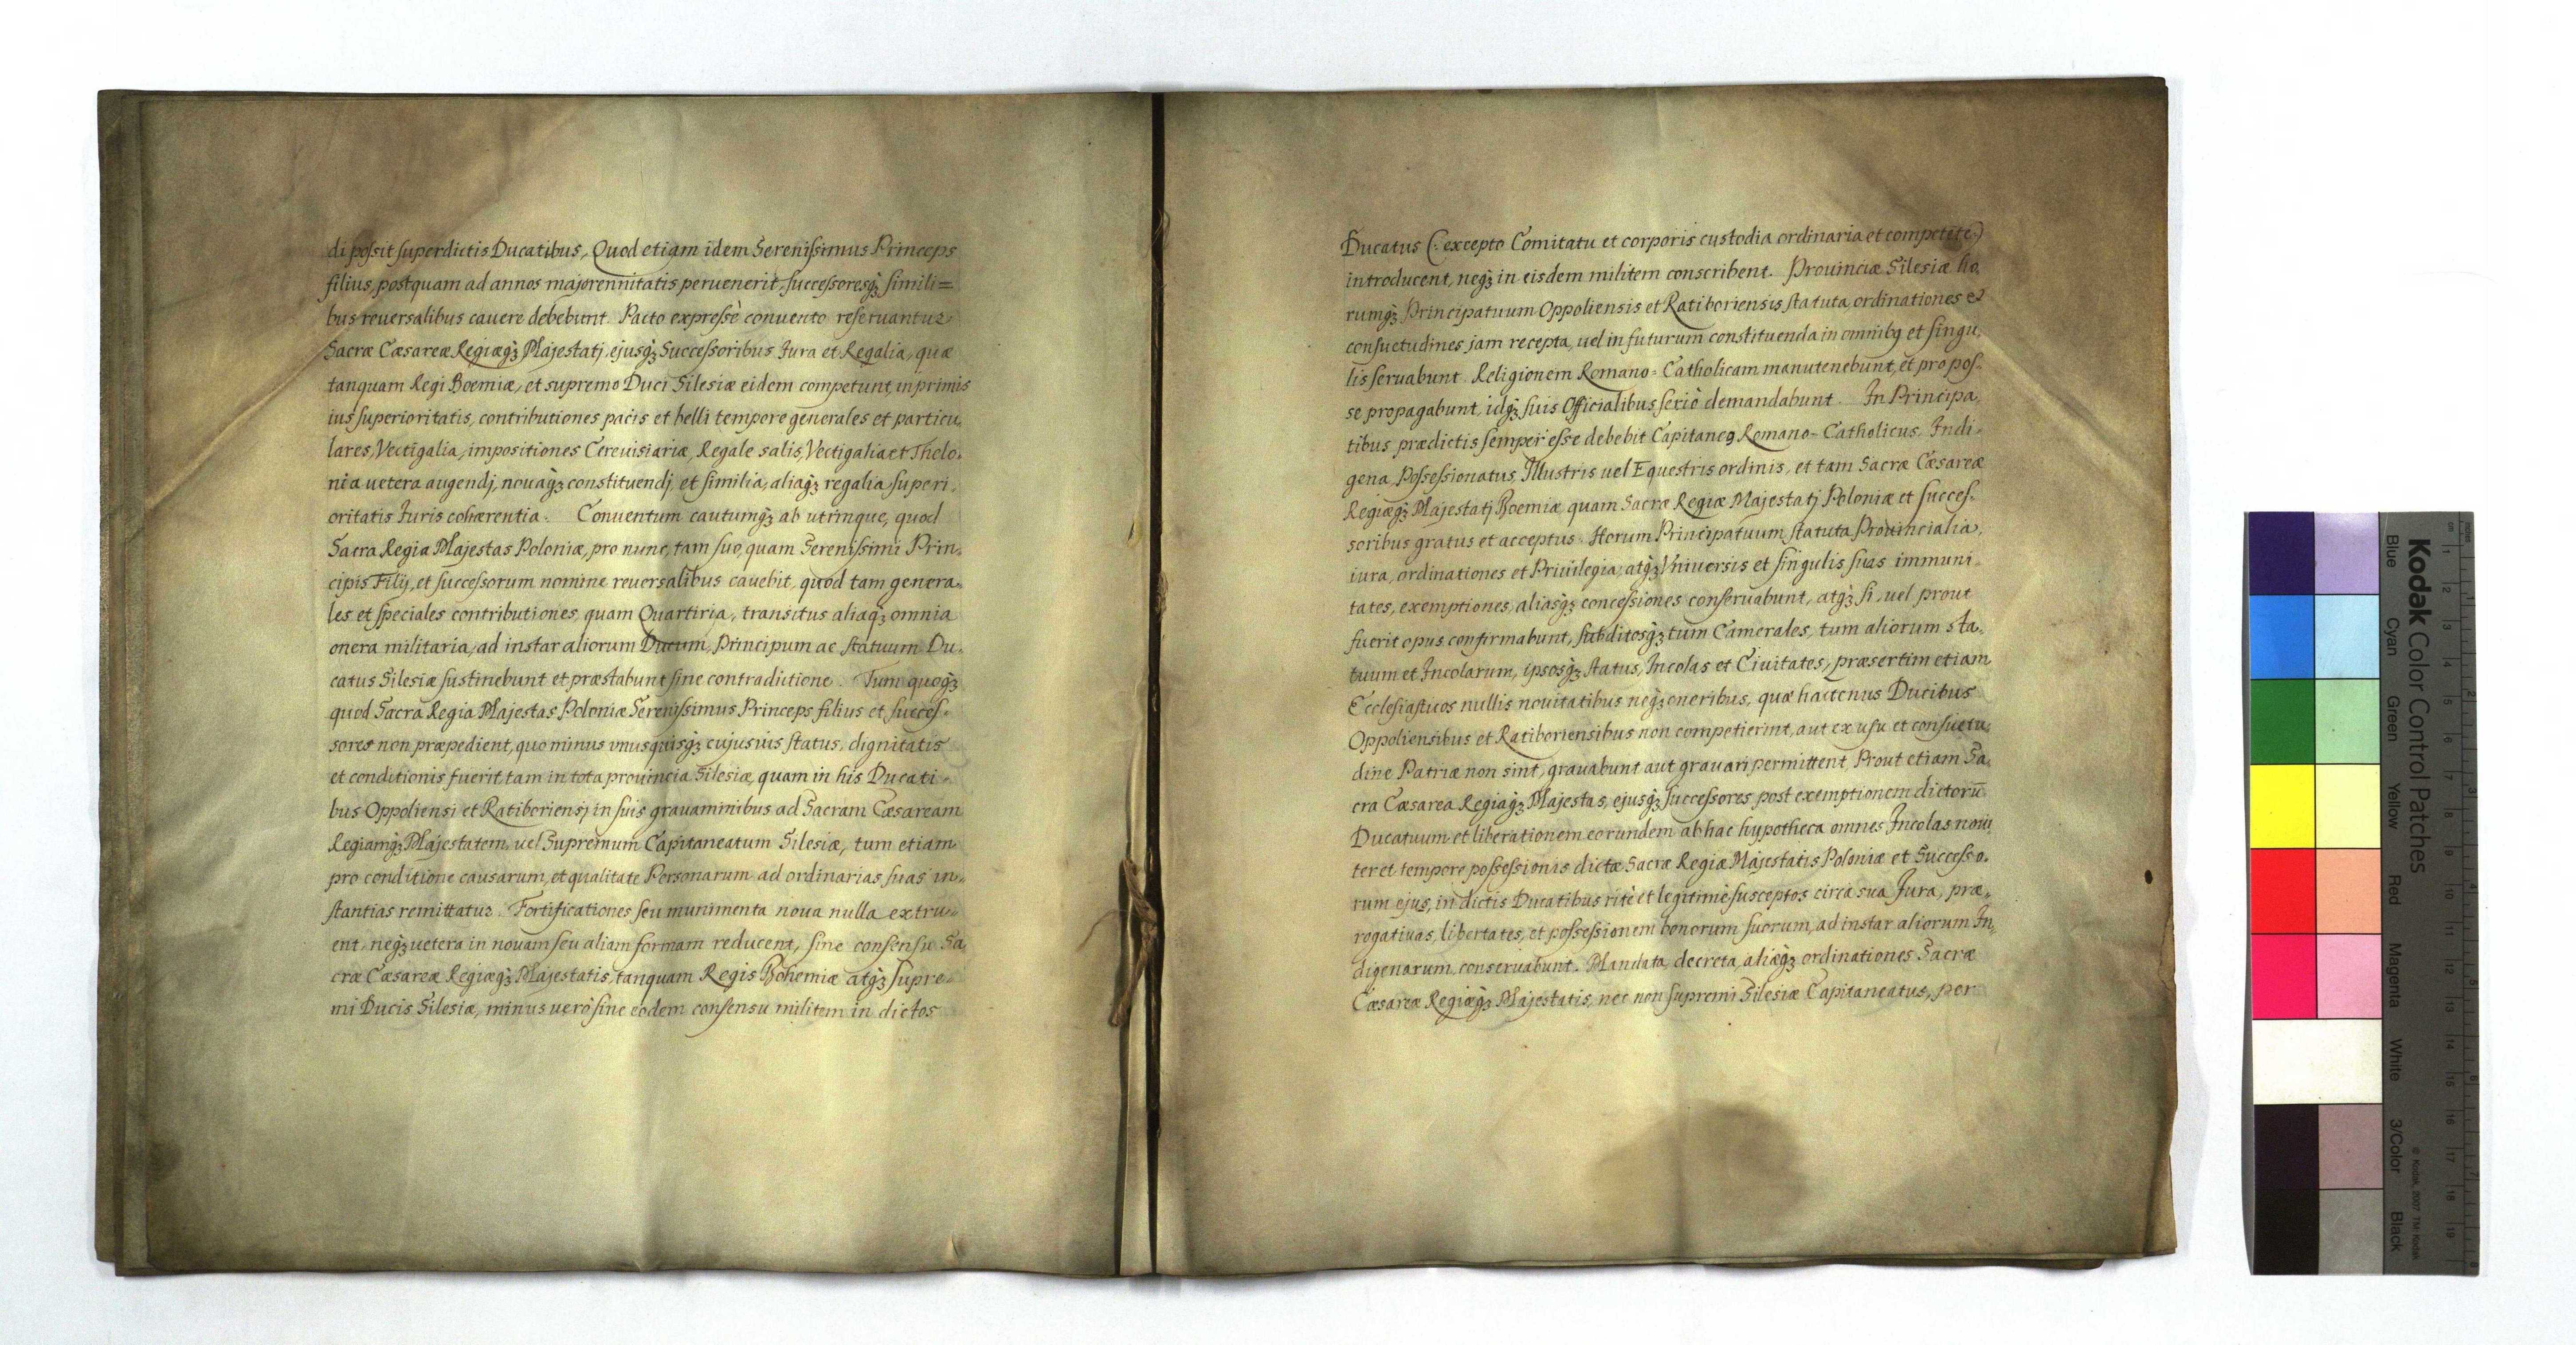 di possit superdictis Ducatibus, Quod etiam idem Serenissimus Princeps
filius, postquam ad annos majorennitatis peruenerit, successoresq́ simili=
bus reuersalibus cauere debebunt. Pacto expressè conuento reseruantur
Sacræ Cæsareæ Regiæq́ Majestatj, ejusq́ Successoribus Jura et Regalia, quæ
tanquam Regi Boemiæ, et supremo Duci Silesiæ eidem competunt, inprimis
ius superioritatis, contributiones pacis et belli tempore generales et particu,
lares, Vectigalia, impositiones Cereuisiariæ, Regale salis, Vectigalia et Thelo,
nia uetera augendj, nouaq́ constituendj et similia, aliaq́ regalia superi,
oritatis Juris cohærentia. Conuentum cautumq́ ab utrinque, quod
Sacra Regia Majestas Poloniæ, pro nunc, tam suo, quam Serenissimi Prin,
cipis Filij, et successorum nomine reuersalibus cauebit, quod tam genera,
les et speciales contributiones, quam Quartiria, transitus aliaq́ omnia
onera militaria, ad instar aliorum Ducum, Principum ac statuum Du,
catus Silesiæ sustinebunt et præstabunt sine contradictione. Tum quoq́
quod Sacra Regia Majestas Poloniæ Serenissimus Princeps filius et succes,
sores non præpedient, quo minus vnusquisq́ cujusuis status, dignitatis
et conditionis fuerit, tam in tota prouincia Silesiæ, quam in his Ducati,
bus Oppoliensi et Ratiboriensj in suis grauaminibus ad Sacram Cæsaream
Regiamq́ Majestatem, uel Supremum Capitaneatum Silesiæ, tum etiam
pro conditione causarum, et qualitate Personarum ad ordinarias suas in,
stantias remittatur. Fortificationes seu munimenta noua nulla extru,
ent, neq́ uetera in nouam seu aliam formam reducent, sine consensu Sa,
cræ Cæsareæ Regiæq́ Majestatis, tanquam Regis Bohemiæ atq́ supre,
mi Ducis Silesiæ, minus uerò sine eodem consensu militem in dictos
Ducatus (: excepto Comitatu et corporis custodia ordinaria et competēte:)
introducent, neq́ in eisdem militem conscribent. Prouinciæ Silesiæ ho,
rumq́ Principatuum Oppoliensis et Ratiboriensis statuta, ordinationes et
consuetudines jam recepta, uel in futurum constituenda in omnibq et singu,
lis seruabunt. Religionem Romano=Catholicam manutenebunt, et pro pos,
se propagabunt, idq́ suis Officialibus seriò demandabunt. In Principa,
tibus prædictis semper esse debebit Capitaneq Romano-Catholicus, Indi,
gena, Possessionatus, Illustris uel Equestris ordinis, et tam Sacræ Cæsareæ
Regiæq́ Majestatj Boemiæ, quam Sacræ Regiæ Majestatj Poloniæ et succes,
soribus gratus et acceptus. Horum Principatuum statuta Prouincialia,
iura, ordinationes et Priuilegia, atq́ Vniuersis et singulis suas immuni,
tates, exemptiones, aliasq́ concessiones conseruabunt, atq́ si, uel prout
fuerit opus confirmabunt, subditosq́ tum Camerales, tum aliorum sta,
tuum et Incolarum, ipsosq́ status, Incolas et Ciuitates, præsertim etiam
Ecclesiastuos nullis nouitatibus neq́ oneribus, quæ hactenus Ducibus
Oppoliensibus et Ratiboriensibus non competierint, aut ex usu et consuetu,
dine Patriæ non sint, grauabunt aut grauari permittent, Prout etiam Sa,
cra Cæsarea Regiaq́ Majestas, ejusq́ successores post exemptionem dictorū
Ducatuum et liberationem eorundem ab hac hypotheca omnes Incolas nouij
ter et tempore possessionis dictæ Sacræ Regiæ Majestatis Poloniæ et Successo,
rum ejus, in dictis Ducatibus ritè et legitimè susceptos circa sua Jura, præ,
rogatiuas, libertates, et possessionem bonorum suorum, ad instar aliorum In,
digenarum, conseruabunt. Mandata, decreta, aliæq́ ordinationes Sacræ
Cæsareæ Regiæq́ Majestatis, nec non supremi Silesiæ Capitaneatus, per
Kodak Color Control Patches
Blue Cyan Green Yellow Red Magenta White 3/Color Black
© Kodak, 2007 TM: Kodak